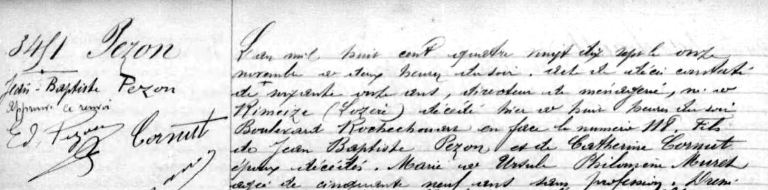 3451 Pezon
Jean-Baptiste Pezon
Approuvé ce renvoi
Ed. Pezon Cornutt
L'an mil huit cent quatre vingt dix sept le onze
novembre à deux heures du soir. Acte de décès constaté
de soixante onze ans, directeur de ménagerie, né à
Rimeize (Lozère) décédé hier à huit heures du soir
Boulevard Rochechouart en face le numéro 118. Fils
de Jean Baptiste Pezon et de Catherine Cornut
époux décédés. Marié à Ursule Philomène Muret
agée de cinquante neuf ans sans profession.